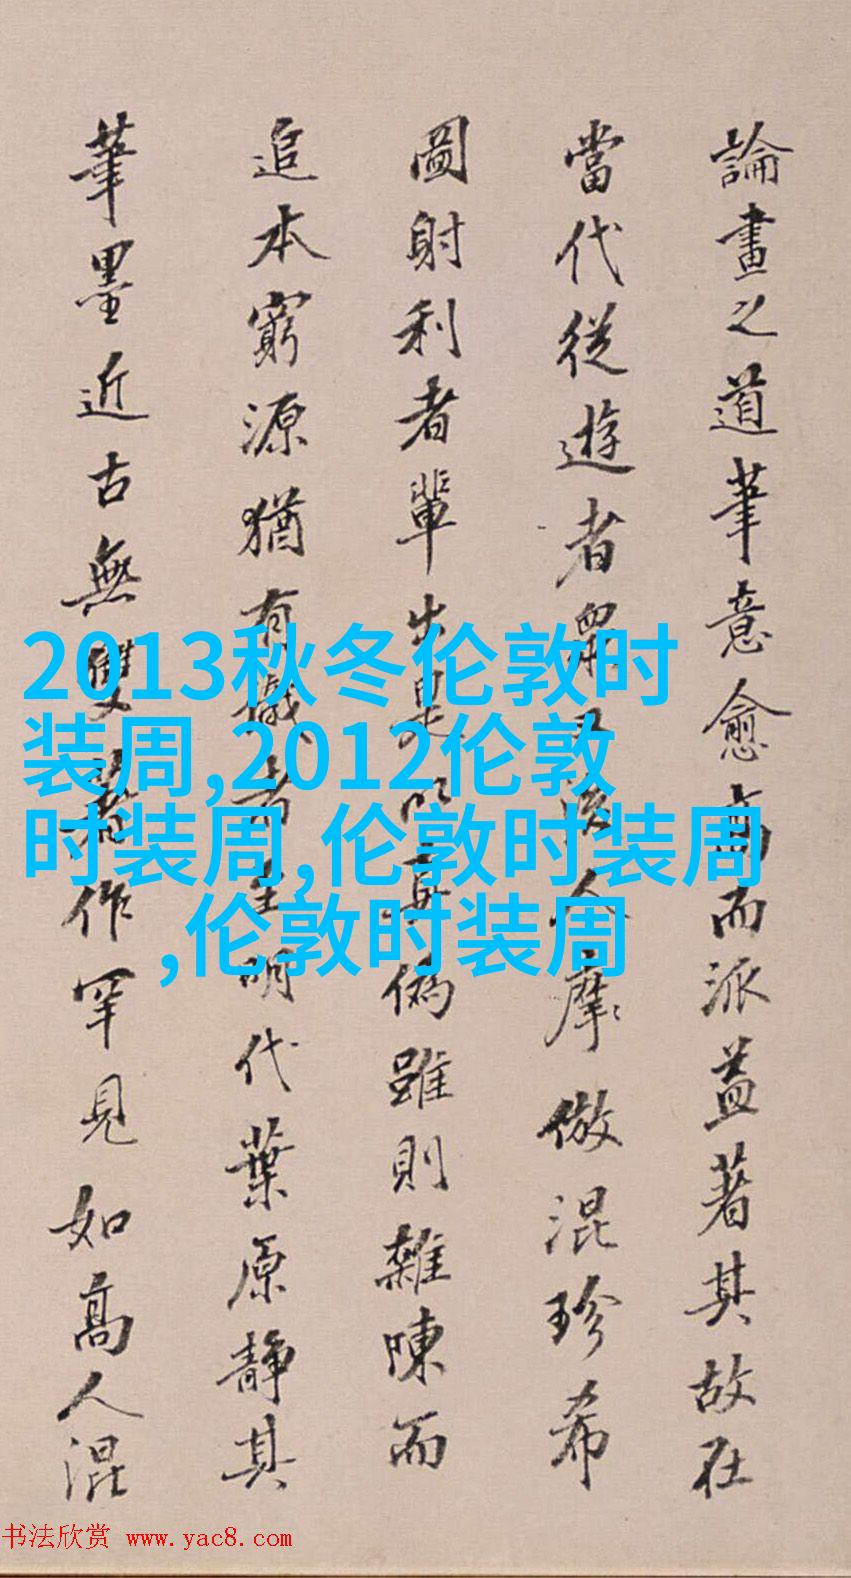 論畫之道筆意愈高而派益著其故在
當代從遊者眾後人摩倣混珍希
圖射利者輩出是以真偽雖則雜陳而
追本窮源猶有識者明代葉原靜其
筆墨近古無雙著作罕見如高人混
2013秋冬伦敦时
装周,2012伦敦
时装周,伦敦时装周
,伦敦时装周
书法欣赏 www.yac8.com